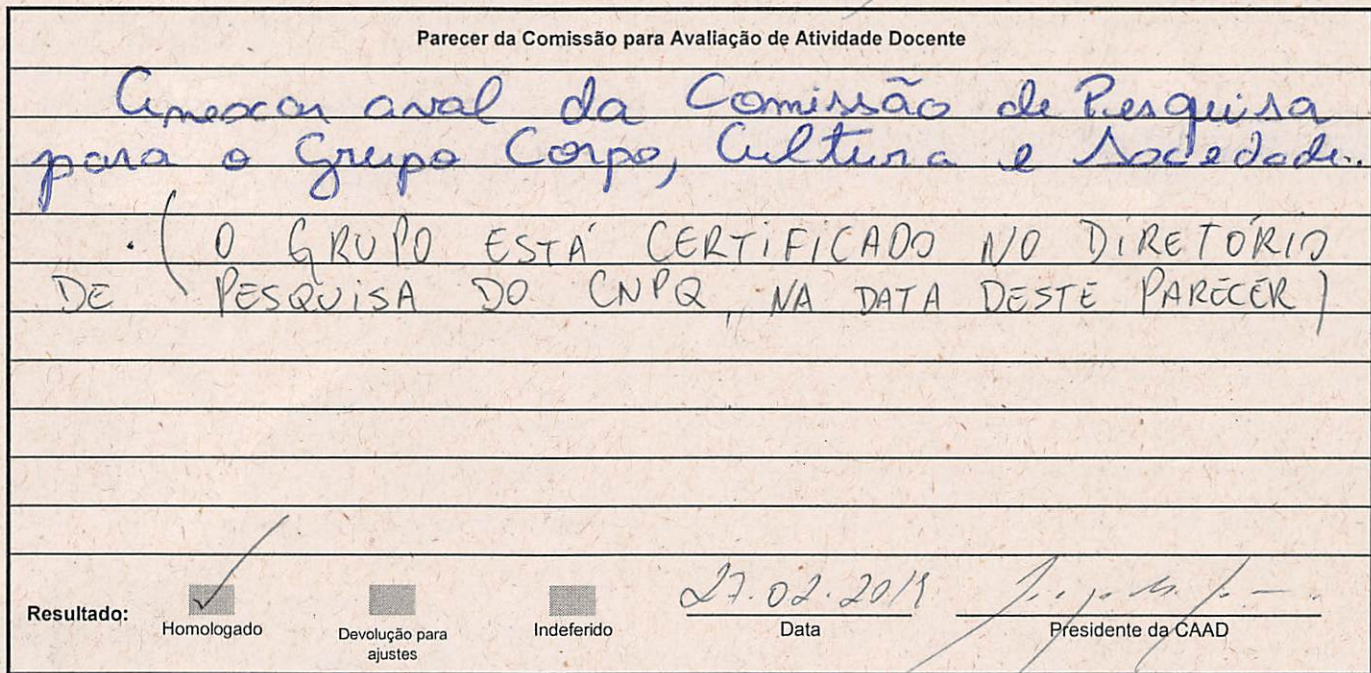 Parecer da Comissão para Avaliação de Atividade Docente
Anexar aval da Comissão de Pesquisa
para o Grupo Corpo, Cultura e Sociedade.
. ( O GRUPO ESTÁ CERTIFICADO NO DIRETÓRIO
DE PESQUISA DO CNPQ, NA DATA DESTE PARECER)
Resultado: Homologado Devolução para ajustes Indeferido 27.02.2019 Data Presidente da CAAD